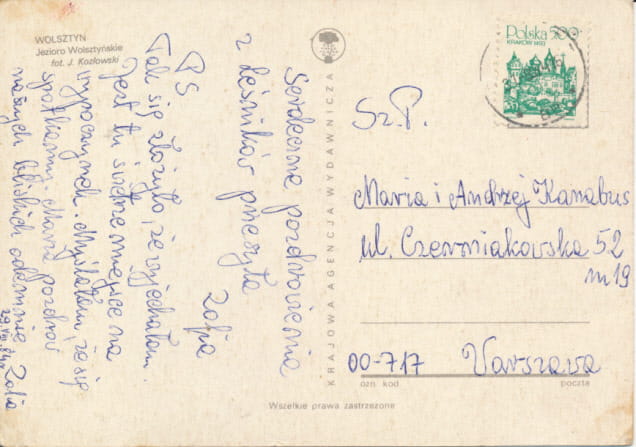 WOLSZTYN
Jezioro Wolsztyńskie
fot. J. Kozłowski
Serdeczne pozdrowienia
z Leśników przesyła
Zofia
PS
Tak się złożyło, że wyjechałam.
Jest tu świetne miejsce na
wypoczynek. Myślałam, że się
spotkamy. Maria pozdrów
naszych bliskich odemnie Zofia
KRAJOWA AGENCJA WYDAWNICZA
Polska 500
KRAKÓW 1493
Sz. P.
Maria i Andrzej Kanabus
ul. Czerniakowska 52
m 19
00-717 Warszawa
ozn. kod
poczta
Wszelkie prawa zastrzeżone